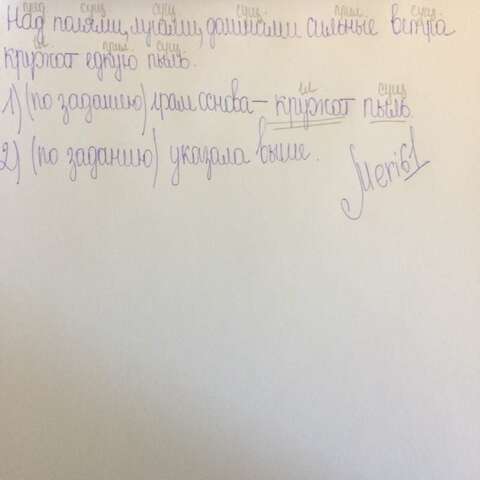 пред сущ сущ сущ. прил. сущ.
Над полями, лугами, долинами сильные ветра
гл прил. сущ.
кружат едкую пыль.
гл сущ
1) (по заданию) грам основа – кружат пыль.
2) (по заданию) указала выше.
Meri61